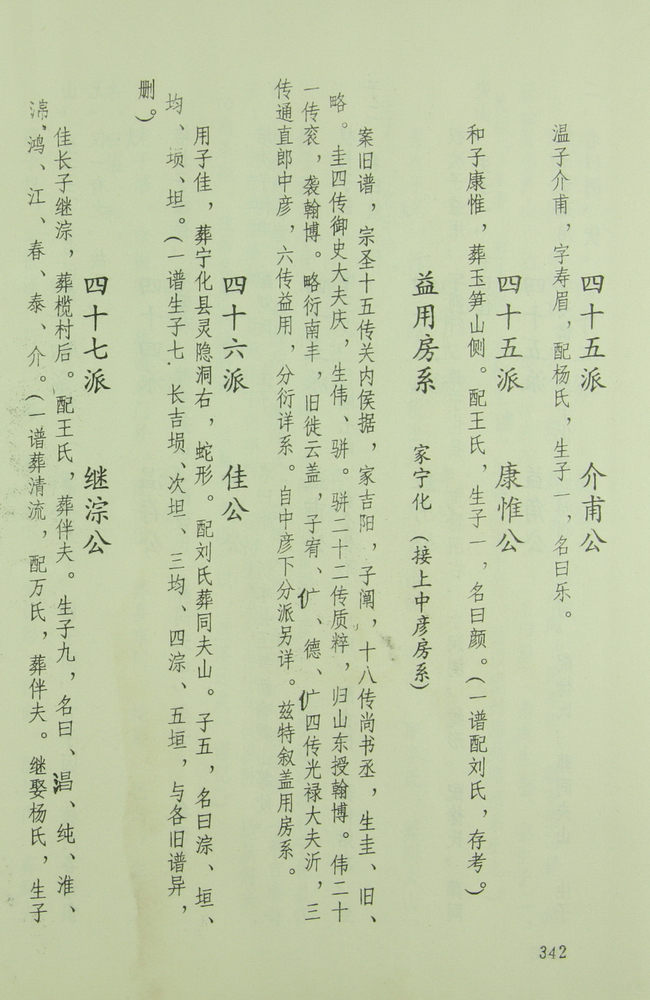 四十五派　介甫公
温子介甫，字寿眉，配杨氏，生子一，名曰乐。
四十五派　康惟公
和子康惟，葬玉笋山侧。配王氏，生子一，名曰颜。(一谱配刘氏，存考。)
益用房系　家宁化　(接上中彦房系)
案旧谱，宗圣十五传关内侯据，家吉阳，子阐，十八传尚书丞，生圭、旧、
略。圭四传御史大夫庆，生伟、骈。骈二十二传质粹，归山东授翰博。伟二十
一传衮，袭翰博。略衍南丰，旧徙云盖，子宥、伉、德、伉四传光禄大夫沂，三
传通直郎中彦，六传益用，分衍详系。自中彦下分派另详。兹特叙盖用房系。
四十六派　佳公
用子佳，葬宁化县灵隐洞右，蛇形。配刘氏葬同夫山。子五，名曰淙、垣、
均、埙、坦。(一谱生子七．长吉埙、次坦、三均、四淙、五垣，与各旧谱异，
删。)
四十七派　继淙公
佳长子继淙，葬榄村后。配王氏，葬伴夫。生子九，名曰、淐、纯、淮、
鸿、江、春、泰、介。(一谱葬清流，配万氏，葬伴夫。继娶杨氏，生子
342